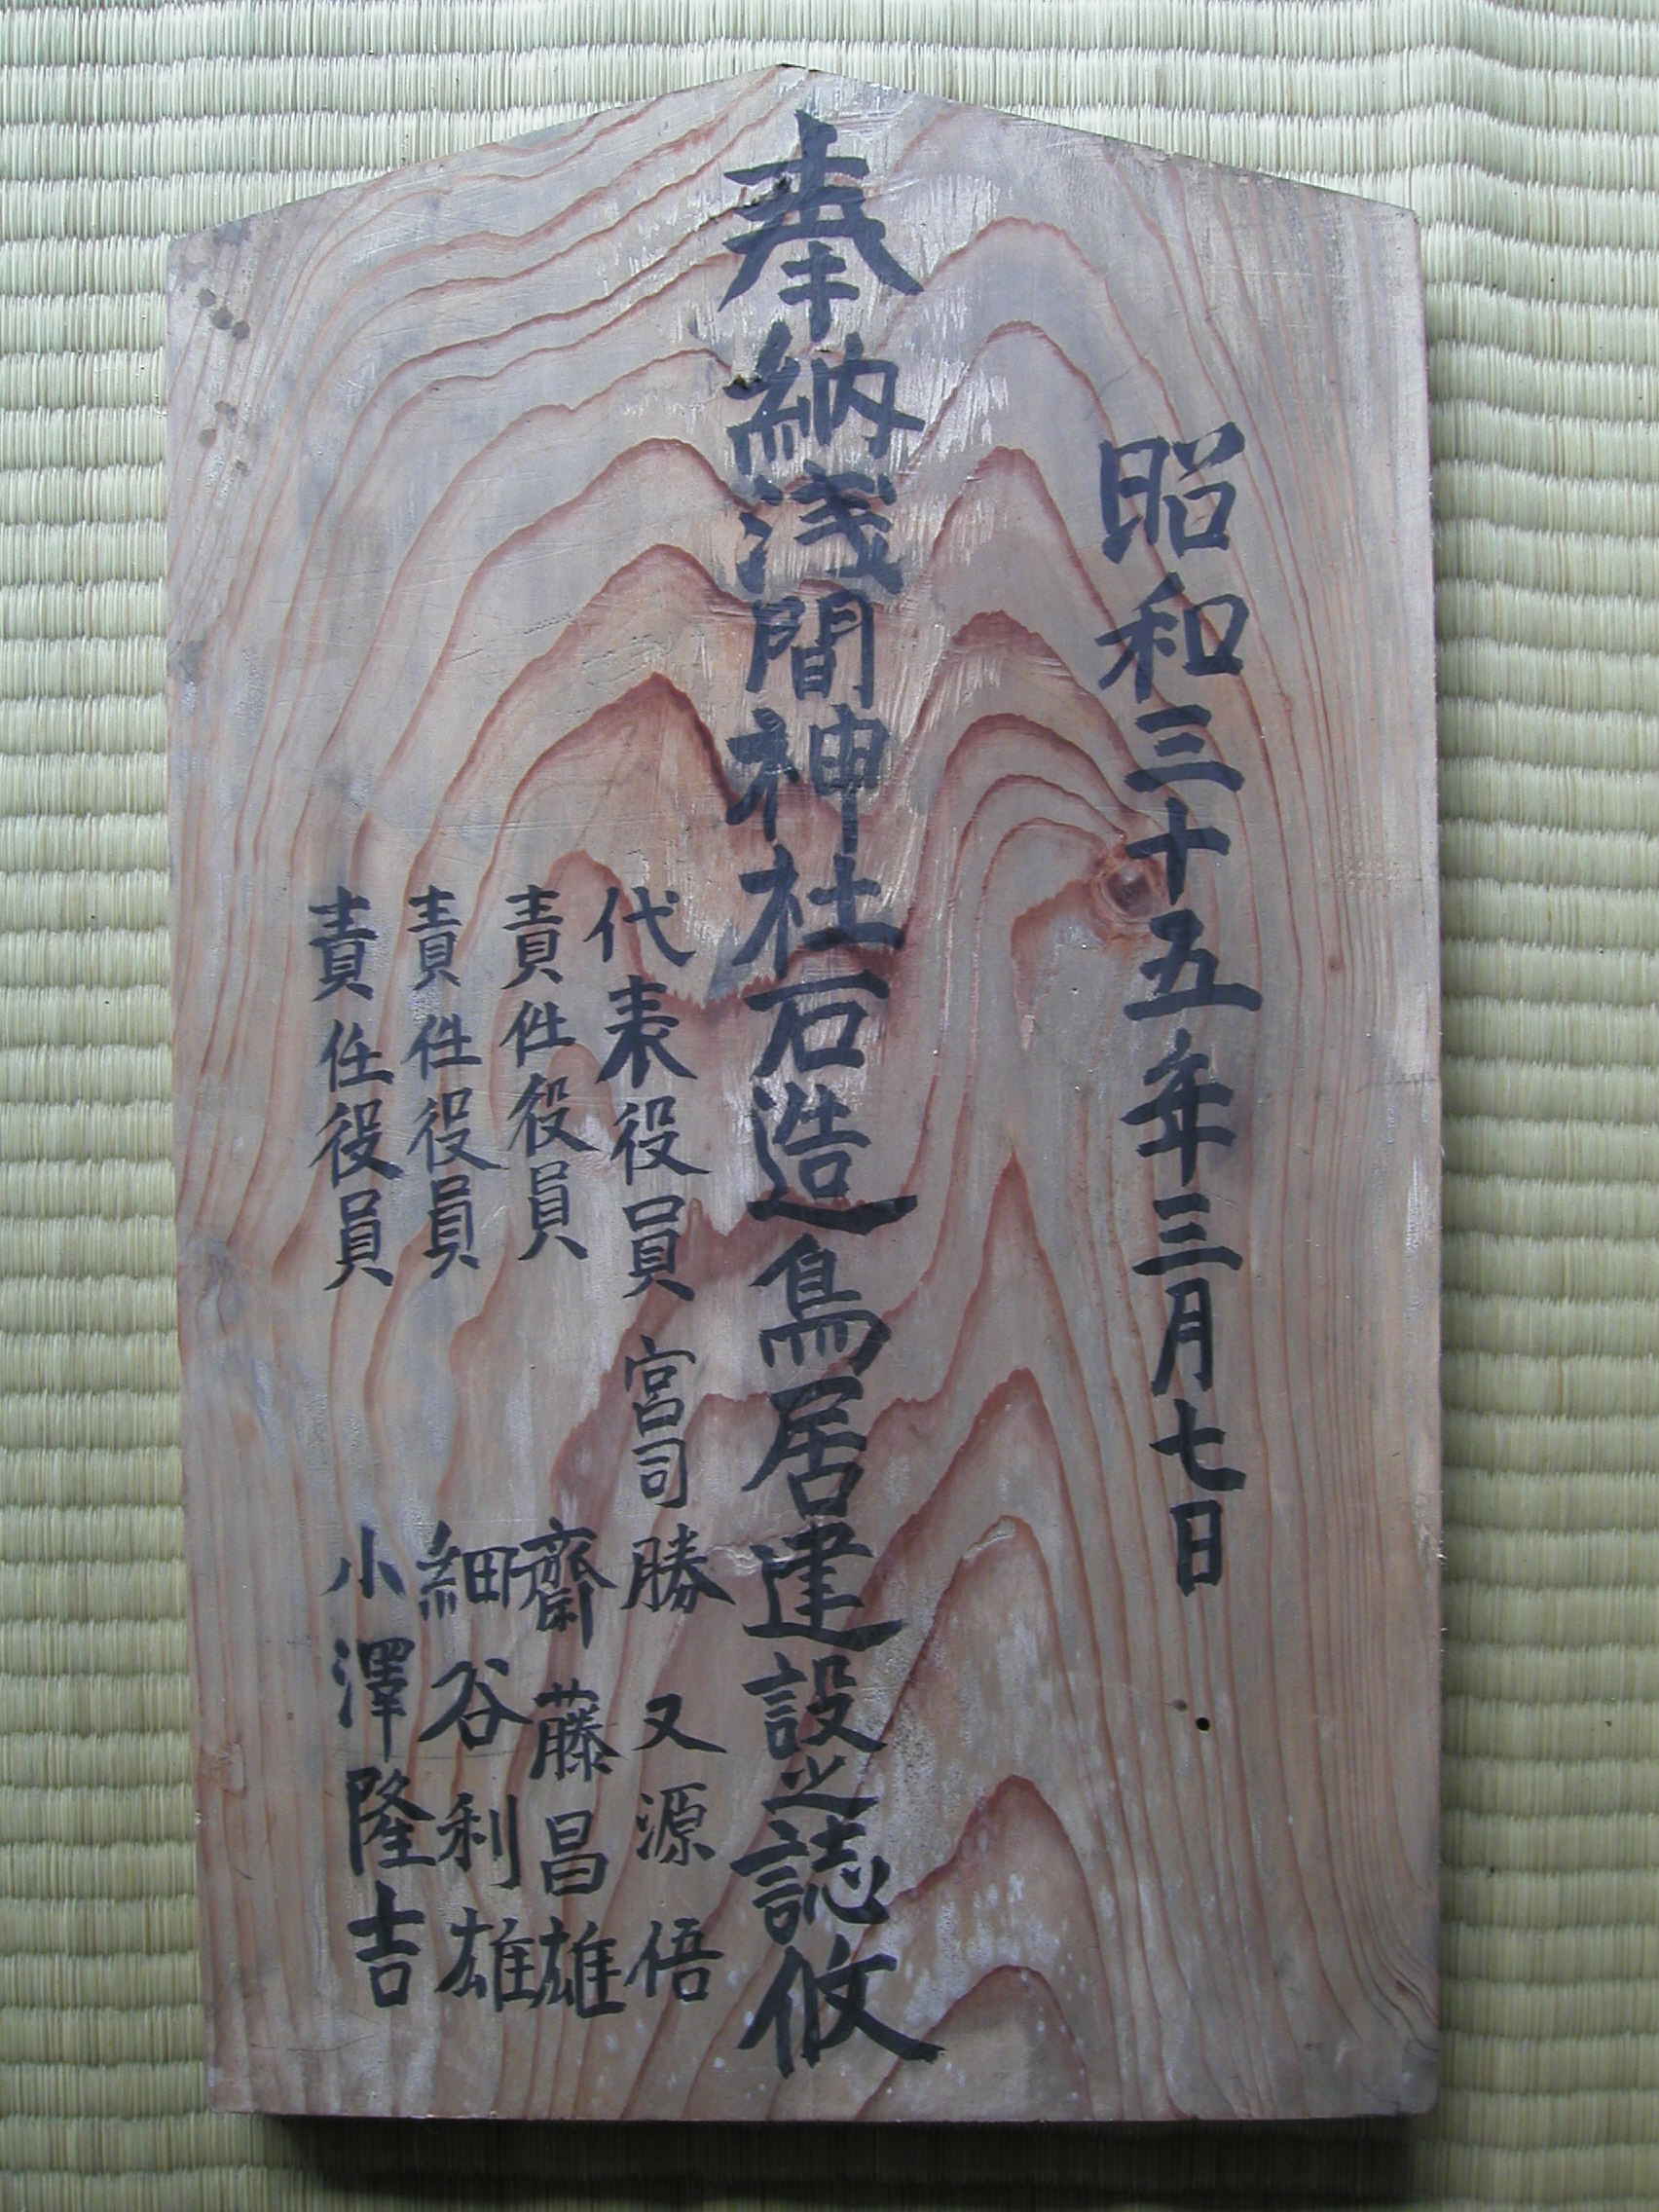 昭和三十五年三月七日
奉納浅間神社石造鳥居建設之誌攸
代表役員 宮司 勝又源悟
責任役員 齋藤昌雄
責任役員 細谷利雄
責任役員 小澤隆吉